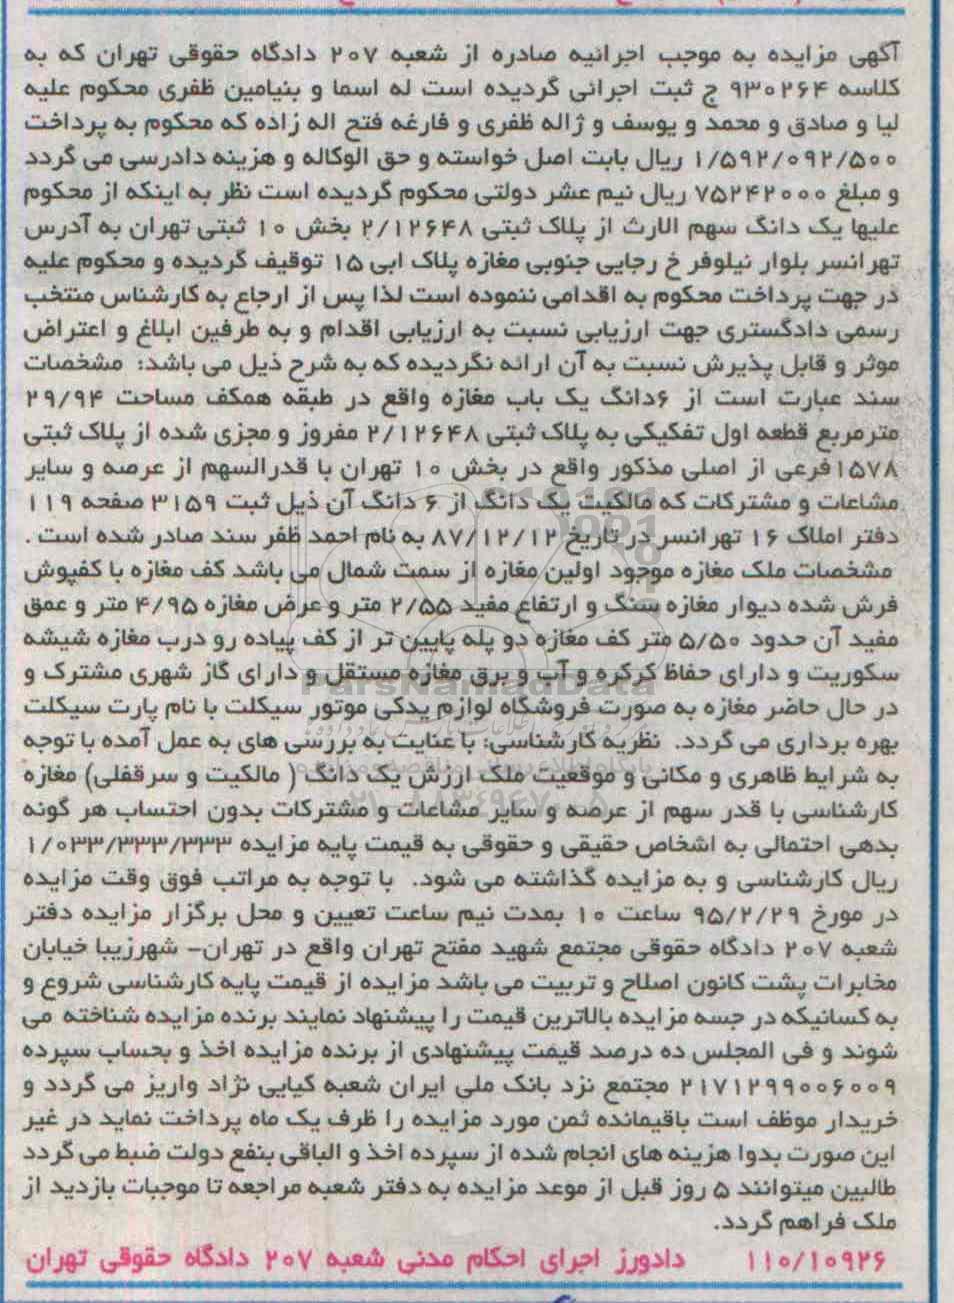 آگهی مزایده به موجب اجرائیه صادره از شعبه ۲۰۷ دادگاه حقوقی تهران که به
کلاسه ۹۳۰۲۶۴ ج ثبت اجرائی گردیده است له اسما و بنیامین ظفری محکوم علیه
لیا و صادق و محمد و یوسف و ژاله ظفری و فارغه فتح اله زاده که محکوم به پرداخت
۱/۵۹۲/۰۹۲/۵۰۰ ریال بابت اصل خواسته و حق الوکاله و هزینه دادرسی می گردد
و مبلغ ۷۵۲۴۲۰۰۰ ریال نیم عشر دولتی محکوم گردیده است نظر به اینکه از محکوم
علیها یک دانگ سهم الارث از پلاک ثبتی ۲/۱۲۶۴۸ بخش ۱۰ ثبتی تهران به آدرس
تهرانسر بلوار نیلوفر خ رجایی جنوبی مغازه پلاک ابی ۱۵ توقیف گردیده و محکوم علیه
در جهت پرداخت محکوم به اقدامی ننموده است لذا پس از ارجاع به کارشناس منتخب
رسمی دادگستری جهت ارزیابی نسبت به ارزیابی اقدام و به طرفین ابلاغ و اعتراض
موثر و قابل پذیرش نسبت به آن ارائه نگردیده که به شرح ذیل می باشد: مشخصات
سند عبارت است از ۶دانگ یک باب مغازه واقع در طبقه همکف مساحت ۲۹/۹۴
مترمربع قطعه اول تفکیکی به پلاک ثبتی ۲/۱۲۶۴۸ مفروز و مجزی شده از پلاک ثبتی
۱۵۷۸فرعی از اصلی مذکور واقع در بخش ۱۰ تهران با قدرالسهم از عرصه و سایر
مشاعات و مشترکات که مالکیت یک دانگ از ۶ دانگ آن ذیل ثبت ۳۱۵۹ صفحه ۱۱۹
دفتر املاک ۱۶ تهرانسر در تاریخ ۸۷/۱۲/۱۲ به نام احمد ظفر سند صادر شده است .
مشخصات ملک مغازه موجود اولین مغازه از سمت شمال می باشد کف مغازه با کفپوش
فرش شده دیوار مغازه سنگ و ارتفاع مفید ۲/۵۵ متر و عرض مغازه ۴/۹۵ متر و عمق
مفید آن حدود ۵/۵۰ متر کف مغازه دو پله پایین تر از کف پیاده رو درب مغازه شیشه
سکوریت و دارای حفاظ کرکره و آب و برق مغازه مستقل و دارای گاز شهری مشترک و
در حال حاضر مغازه به صورت فروشگاه لوازم یدکی موتور سیکلت با نام پارت سیکلت
بهره برداری می گردد. نظریه کارشناسی: با عنایت به بررسی های به عمل آمده با توجه
به شرایط ظاهری و مکانی و موقعیت ملک ارزش یک دانگ ( مالکیت و سرقفلی) مغازه
کارشناسی با قدر سهم از عرصه و سایر مشاعات و مشترکات بدون احتساب هر گونه
بدهی احتمالی به اشخاص حقیقی و حقوقی به قیمت پایه مزایده ۱/۰۳۳/۳۳۳/۳۳۳
ریال کارشناسی و به مزایده گذاشته می شود. با توجه به مراتب فوق وقت مزایده
در مورخ ۹۵/۲/۲۹ ساعت ۱۰ بمدت نیم ساعت تعیین و محل برگزار مزایده دفتر
شعبه ۲۰۷ دادگاه حقوقی مجتمع شهید مفتح تهران واقع در تهران- شهرزیبا خیابان
مخابرات پشت کانون اصلاح و تربیت می باشد مزایده از قیمت پایه کارشناسی شروع و
به کسانیکه در جسه مزایده بالاترین قیمت را پیشنهاد نمایند برنده مزایده شناخته می
شوند و فی المجلس ده درصد قیمت پیشنهادی از برنده مزایده اخذ و بحساب سپرده
۲۱۷۱۲۹۹۰۰۶۰۰۹ مجتمع نزد بانک ملی ایران شعبه کیایی نژاد واریز می گردد و
خریدار موظف است باقیمانده ثمن مورد مزایده را ظرف یک ماه پرداخت نماید در غیر
این صورت بدوا هزینه های انجام شده از سپرده اخذ و الباقی بنفع دولت ضبط می گردد
طالبین میتوانند ۵ روز قبل از موعد مزایده به دفتر شعبه مراجعه تا موجبات بازدید از
ملک فراهم گردد.
۱۱۰/۱۰۹۲۶ دادورز اجرای احکام مدنی شعبه ۲۰۷ دادگاه حقوقی تهران
ParsNamadData